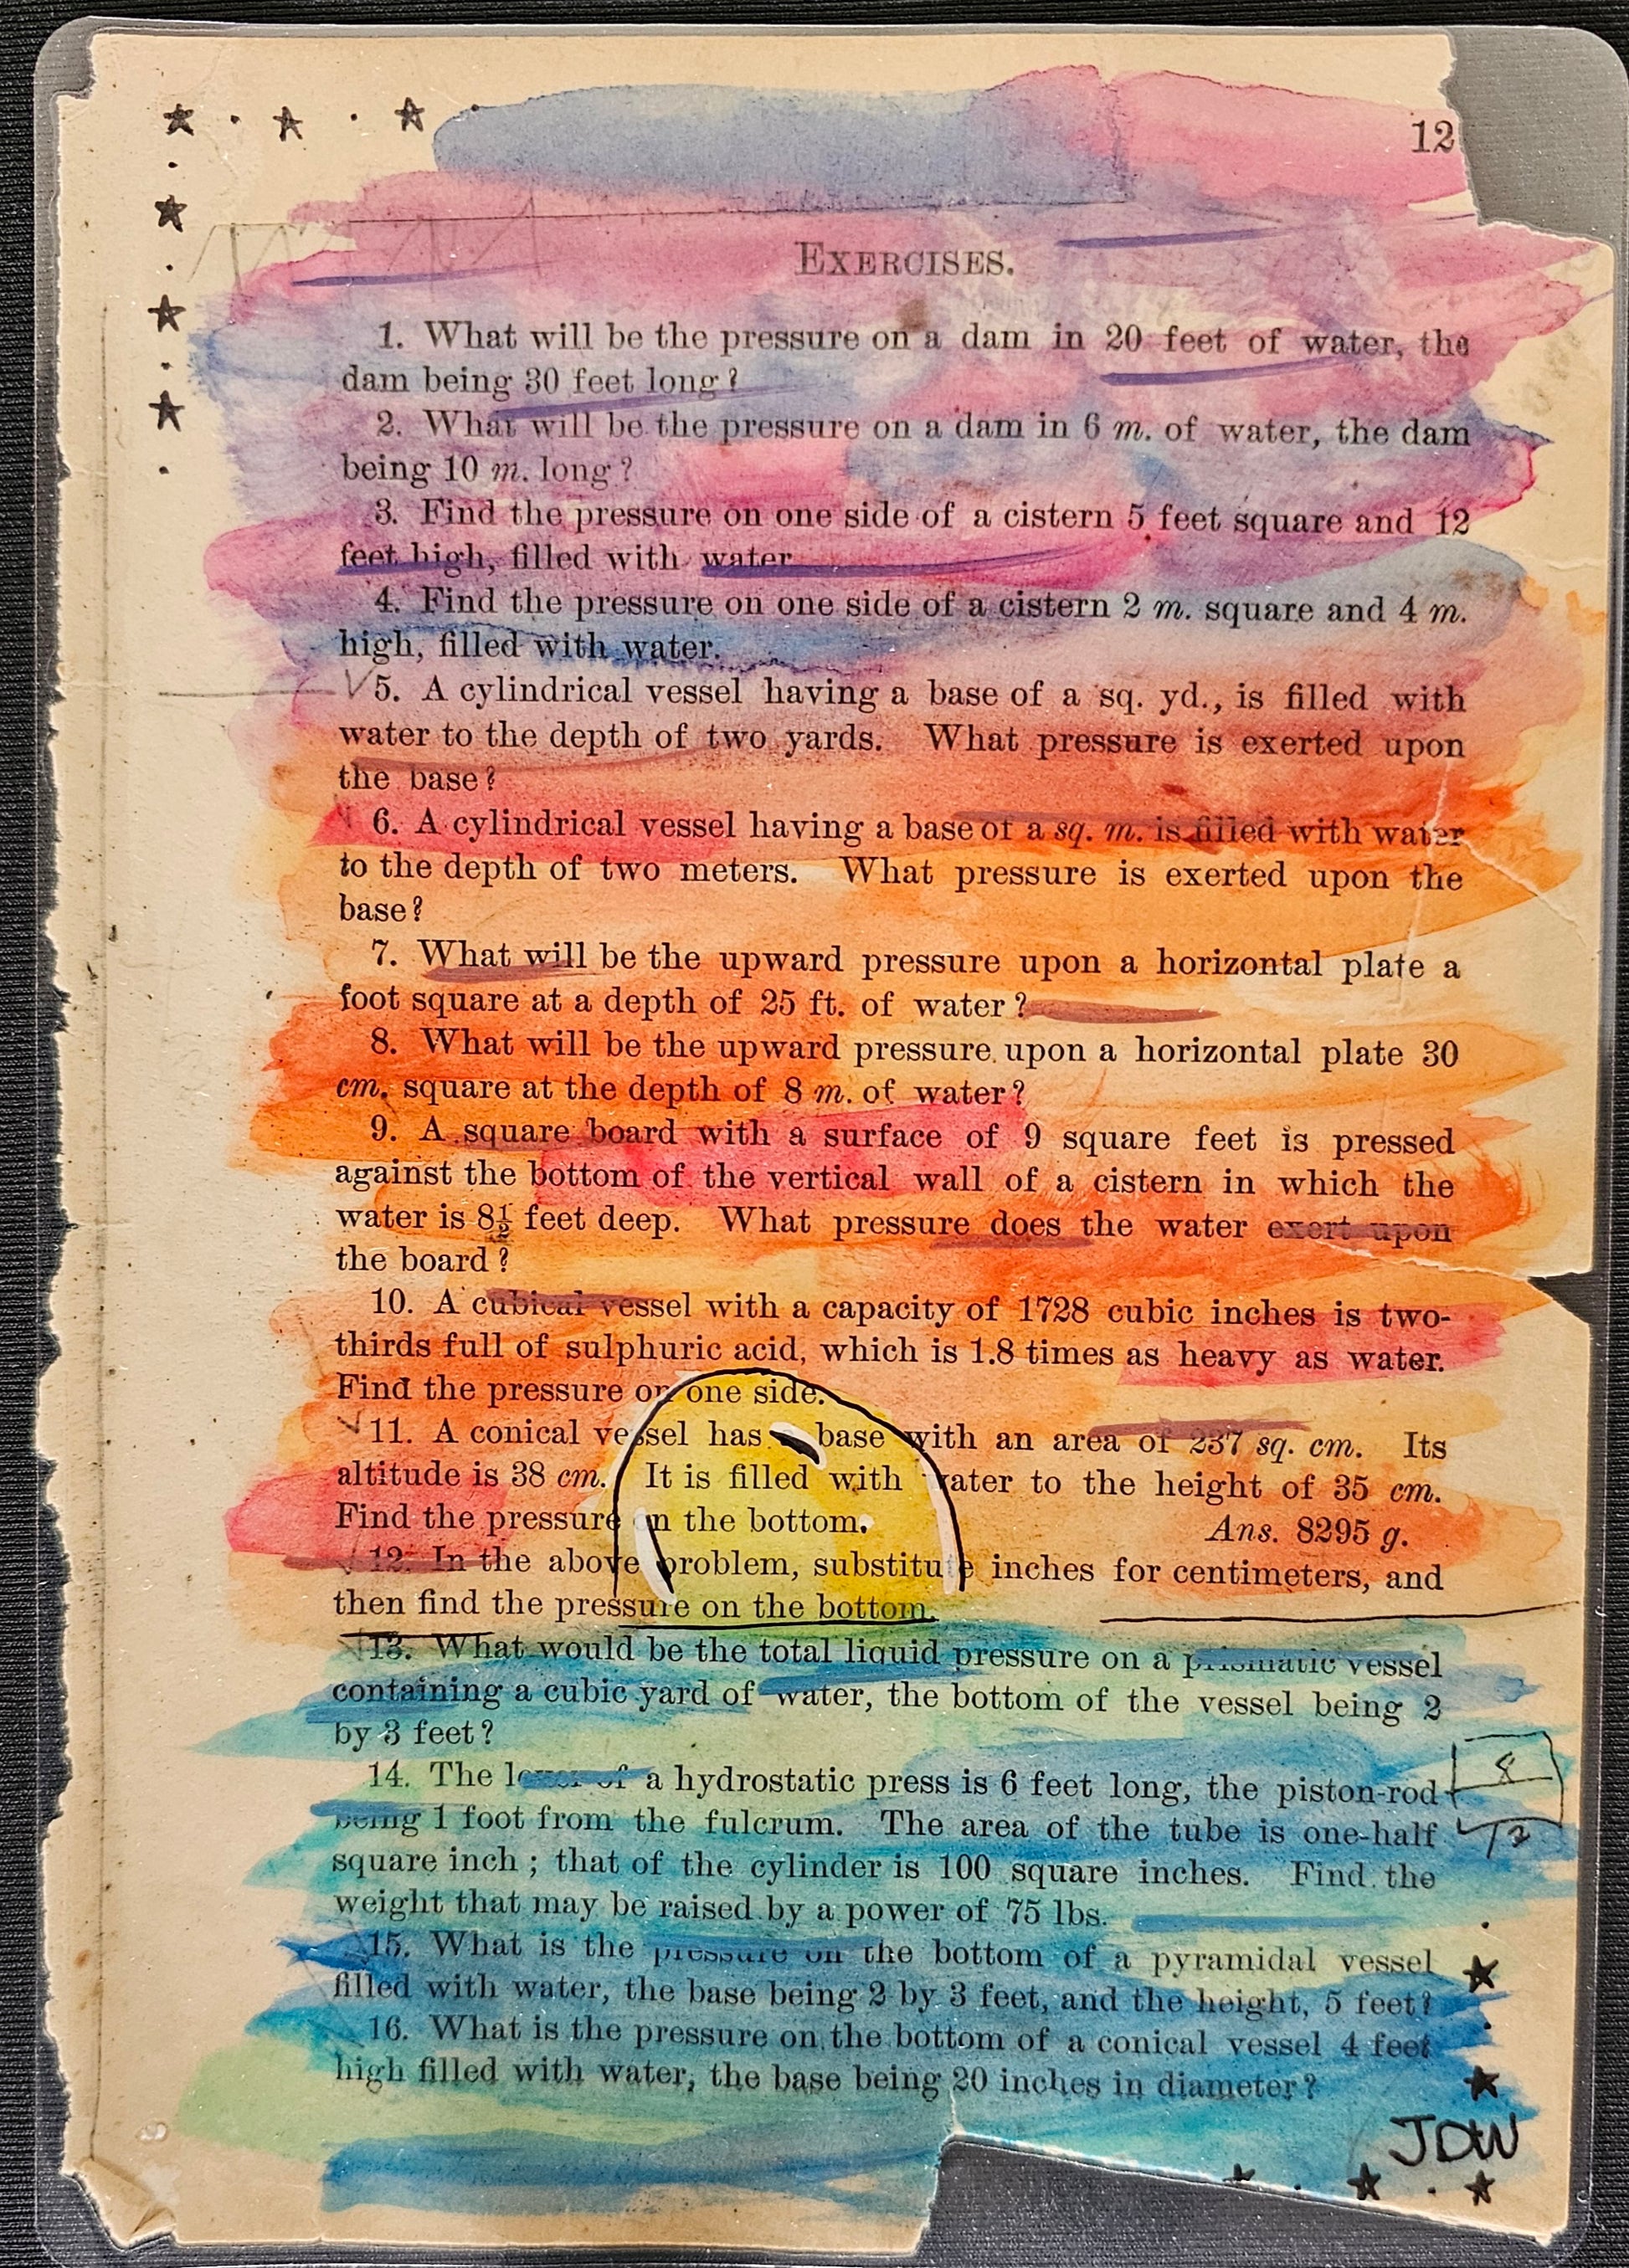 12
EXERCISES.
1. What will be the pressure on a dam in 20 feet of water, the
dam being 30 feet long?
2. What will be the pressure on a dam in 6 m. of water, the dam
being 10 m. long?
3. Find the pressure on one side of a cistern 5 feet square and 12
feet high, filled with water
4. Find the pressure on one side of a cistern 2 m. square and 4 m.
high, filled with water.
5. A cylindrical vessel having a base of a sq. yd., is filled with
water to the depth of two yards. What pressure is exerted upon
the base?
6. A cylindrical vessel having a base of a sq. m. is filled with water
to the depth of two meters. What pressure is exerted upon the
base?
7. What will be the upward pressure upon a horizontal plate a
foot square at a depth of 25 ft. of water?
8. What will be the upward pressure upon a horizontal plate 30
cm. square at the depth of 8 m. of water?
9. A square board with a surface of 9 square feet is pressed
against the bottom of the vertical wall of a cistern in which the
water is 8½ feet deep. What pressure does the water exert upon
the board?
10. A cubical vessel with a capacity of 1728 cubic inches is two-
thirds full of sulphuric acid, which is 1.8 times as heavy as water.
Find the pressure on one side.
11. A conical vessel has base with an area of 237 sq. cm. Its
altitude is 38 cm. It is filled with water to the height of 35 cm.
Find the pressure on the bottom. Ans. 8295 g.
12. In the above problem, substitute inches for centimeters, and
then find the pressure on the bottom.
13. What would be the total liquid pressure on a prismatic vessel
containing a cubic yard of water, the bottom of the vessel being 2
by 3 feet?
14. The lever of a hydrostatic press is 6 feet long, the piston-rod
being 1 foot from the fulcrum. The area of the tube is one-half
square inch; that of the cylinder is 100 square inches. Find the
weight that may be raised by a power of 75 lbs.
15. What is the pressure on the bottom of a pyramidal vessel
filled with water, the base being 2 by 3 feet, and the height, 5 feet?
16. What is the pressure on the bottom of a conical vessel 4 feet
high filled with water, the base being 20 inches in diameter?
JDW